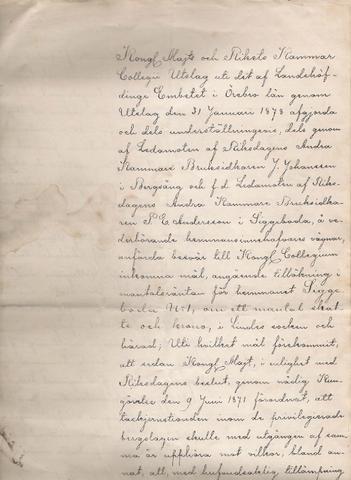 Kongl. Majts och Rikets Kammar
Collegii Utslag uti det af Landshöf-
dinge Embetet i Örebro län genom
Utslag den 31 Januari 1873 afgjorda
och dels underställningsvis, dels genom
af Ledamoten af Riksdagens Andra
Kammare Bruksidkaren J. Johansson
i Bergsäng och f.d. Ledamoten af Riks-
dagens Andra Kammare Bruksidka-
ren P. E. Andersson i Siggeboda, å ve-
derbörande hemmansinnehafvares vägnar,
anförda besvär till Kongl. Collegium
inkomna mål, angående tillökning i
mantalsräntan för hemmanet Sigge-
boda No 1, om ett mantal skat-
te och krono, i Lindes socken och
härad; Uti hvilket mål förekommit,
att sedan Kongl. Majt, i enlighet med
Riksdagens beslut, genom nådig Kun-
görelse den 9 Juni 1871 förordnat, att
tackjernstionden inom de privilegierade
bergslagen skulle med utgången af sam-
ma år upphöra mot vilkor, bland an-
nat, att, med hufvudsaklig tillämpning